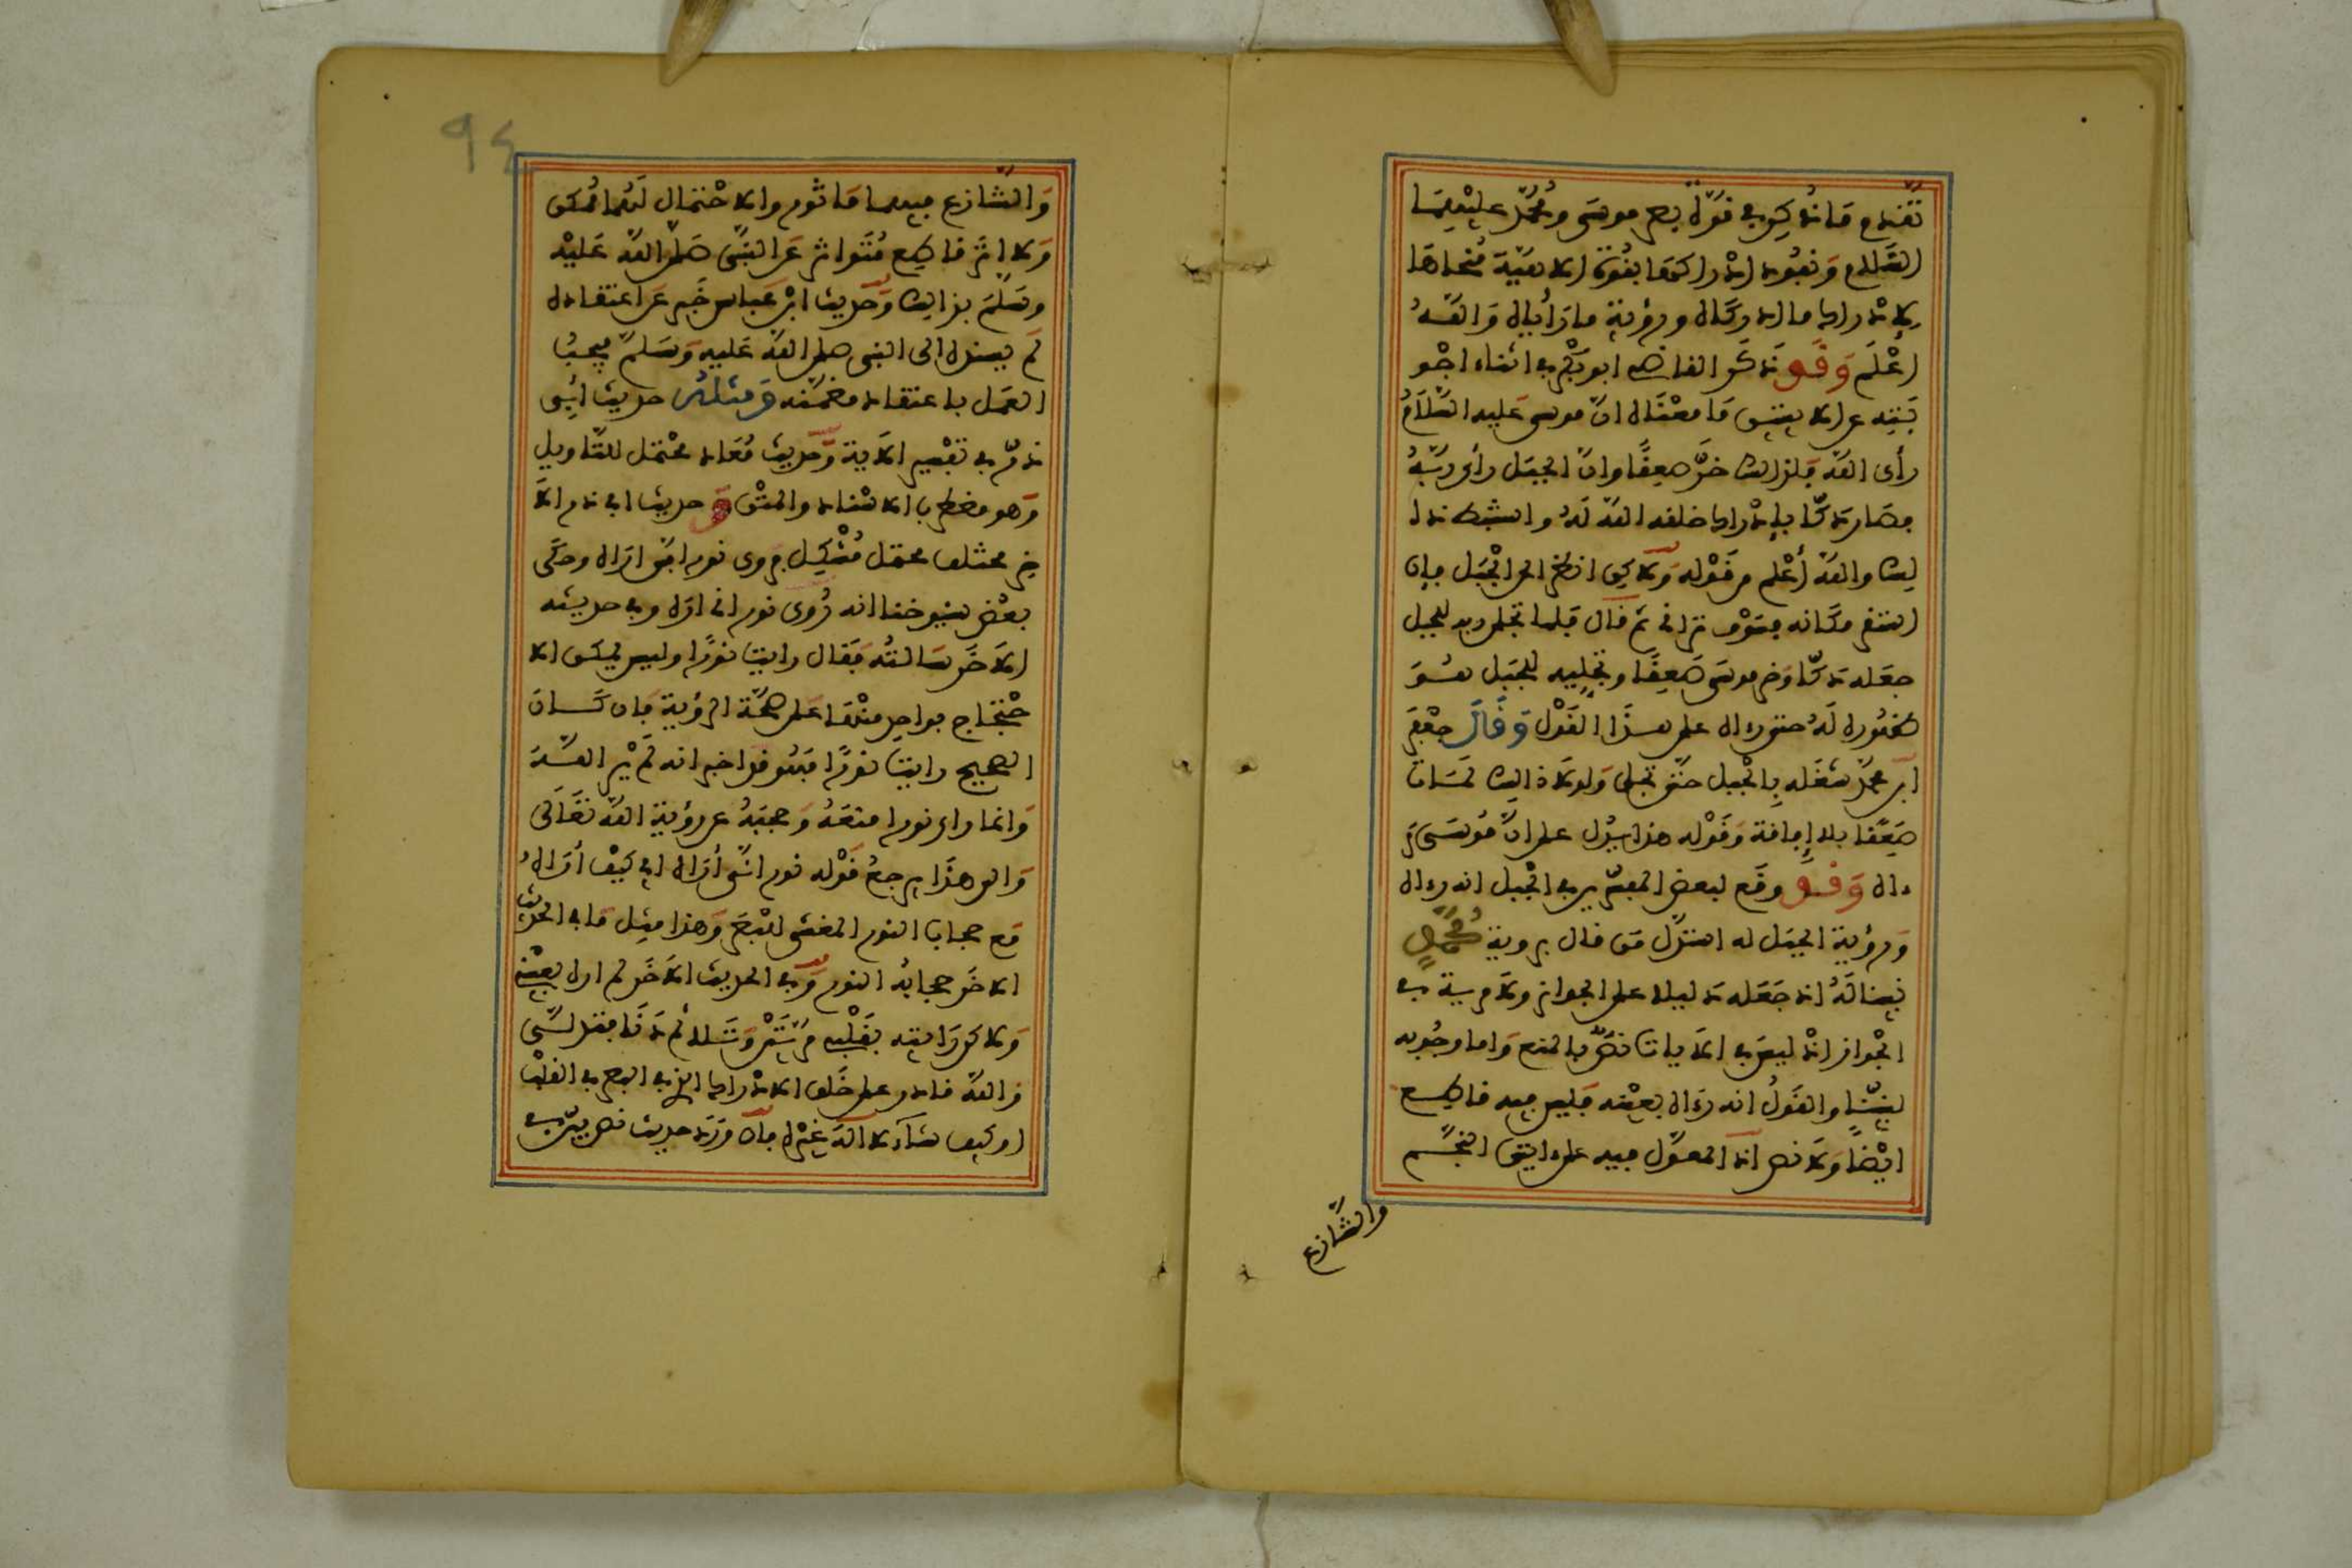 تقدم ما ذكر في قوة بصر موسى ومحمد عليهما
السلام ونفوذ إدراكهما بقوة إلاهية منحاها
لإدراك ما أدركاه ورؤية ما رأياه والله
أعلم وقد ذكر القاضي أبو بكر في أثناء أجو
بته عن الآيتين ما معناه أن موسى عليه السلام
رأى الله فلذلك خر صعقا وأن الجبل رأى ربه
فصار دكا بإدراك خلقه الله له واستنبط ذا
لك والله أعلم من قوله ولكن انظر إلى الجبل فإن
استقر مكانه فسوف تراني ثم قال فلما تجلى ربه للجبل
جعله دكا وخر موسى صعقا وتجليه للجبل هو
ظهوره له حتى رءاه على هذا القول وقال جعفر
ابن محمد شغله بالجبل حتى تجلى ولولا ذلك لمات
صعقا بلا إفاقة وقوله هذا يدل على أن موسى ر
ءاه وقد وقع لبعض المفسرين في الجبل أنه رءاه
وبرؤية الجبل له استدل من قال بروية محمد
نبينا له إذ جعله دليلا على الجواز ولا مرية في
الجواز إذ ليس في الآيات نص بالمنع وأما وجوبه
لنبينا والقول أنه رءاه بعينه فليس فيه قاطع
أيضا ولا نص إذ المعول فيه على ءايتي النجم
والتنازع
٩٤
والتنازع فيهما ماثور والاحتمال لهما ممكن
ولا أثر قاطع متواتر عن النبي صلى الله عليه
وسلم بذالك وحديث ابن عباس خبر عن اعتقاده
لم يسنده إلى النبي صلى الله عليه وسلم فيجب
العمل باعتقاد مضمنه ومثله حديث أبي
ذر في تفسير الآية وحديث معاذ محتمل للتاويل
وهو مضطرب الاسناد والمتن وحديث أبي ذر الآ
خر مختلف محتمل مشكل فروى نور أنى أراه وحكى
بعض شيوخنا أنه روى نوراني أراه وفي حديثه
الآخر سالته فقال رايت نورا وليس يمكن الا
حتجاج بواحد منها على صحة الرؤية فإن كان
الصحيح رايت نورا فهو قد أخبر أنه لم ير الله
وإنما رأى نورا منعه وحجبه عن رؤية الله تعالى
وإلى هذا يرجع قوله نور أنى أراه أي كيف أراه
مع حجاب النور المغشي للبصر وهذا مثل ما في الحديث
الآخر حجابه النور وفي الحديث الآخر لم أره بعيني
ولاكن رايته بقلبي مرتين وتلا ثم دنا فتدلى
والله قادر على خلق الإدراك الذي في البصر في القلب
أو كيف شاء لا إله غيره فإن ورد حديث نص بين في